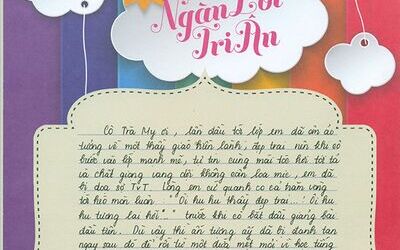 Ngàn Lời
Tri Ân
Cô Trà My ơi, lần đầu tới lớp em đã có ấn
tượng về một thầy giáo hiền lành, đẹp trai nên khi cô
bước vào lớp mạnh mẽ, tự tin cùng mái tóc hơi tót tả
và chất giọng vang dội không cần loa mic, em đã
bị dọa sợ TvT. Lòng em cứ quanh co cả trăm vòng
tơ héo mòn luôn "Ôi hu hu thầy đẹp trai...! Ôi hu
hu tương lai hỡi!" trước khi cô bắt đầu giảng bài
đầu tiên. Dù vậy thì ấn tượng ấy đã bị đánh tan
ngay sau đó để rồi từ một đứa mệt mỏi vì học từng